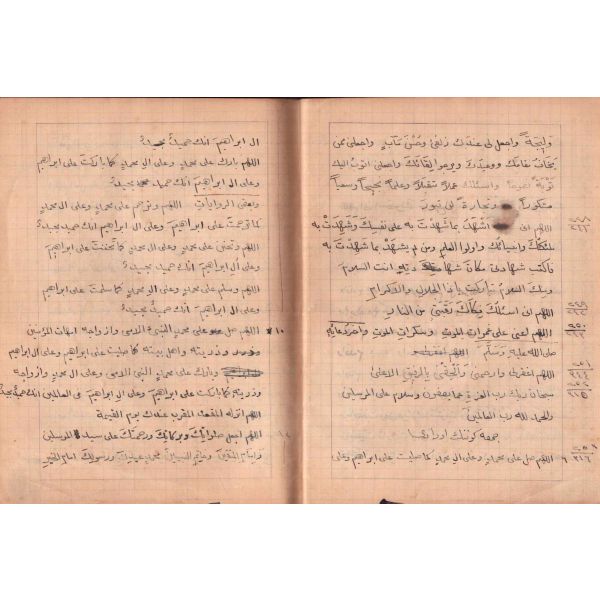 وليجة واجعل لى عندك زلفى وحسن مآب واجعلنى ممن
يخاف مقامك ووعيدك ويرجو لقائك واجعلنى اتوب اليك
توبة نصوحا واسئلك عملا متقبلا وعلما نجيحا وسعيا
مشكورا وتجارة لن تبور
اللهم انى اشهد بما شهدت به على نفسك وشهدت به
ملئكتك وانبيائك واولوا العلم ومن لم يشهد بما شهدت به
فاكتب شهادتى مكان شهادته انت السلام
ومنك السلام تباركت ياذا الجلال والاكرام
اللهم انى اسئلك فكاك رقبتى من النار
اللهم اعنى على غمرات الموت وسكرات الموت وآخر دعائه
صلى الله عليه وسلم اللهم اغفرلى
اللهم اغفرلى وارحمنى والحقنى بالرفيق الاعلى
سبحان ربك رب العزة عما يصفون وسلام على المرسلين
والحمد لله رب العالمين
جمعه كوننك اورادى
اللهم صل على محمد وعلى ال محمد كما صليت على ابراهيم وعلى
ال ابراهيم انك حميد مجيد
اللهم بارك على محمد وعلى ال محمد كما باركت على ابراهيم
وعلى ال ابراهيم انك حميد مجيد
وبعض الروايات اللهم وترحم على محمد وعلى ال محمد
كما ترحمت على ابراهيم وعلى ال ابراهيم انك حميد مجيد
اللهم وتحنن على محمد وعلى ال محمد كما تحننت على ابراهيم
وعلى ال ابراهيم انك حميد مجيد
اللهم وسلم على محمد وعلى ال محمد كما سلمت على ابراهيم
وعلى ال ابراهيم انك حميد مجيد
١٠ اللهم صل على محمد النبى الامى وازواجه امهات المؤمنين
وذريته واهل بيته كما صليت على ابراهيم وعلى ال ابراهيم
وبارك على محمد النبى الامى وعلى ال محمد وازواجه
وذريته كما باركت على ابراهيم وعلى ال ابراهيم فى العالمين انك حميد مجيد
اللهم انزله المقعد المقرب عندك يوم القيمة
اللهم اجعل صلواتك وبركاتك ورحمتك على سيد المرسلين
وامام المتقين وخاتم النبيين محمد عبدك ورسولك امام الخير